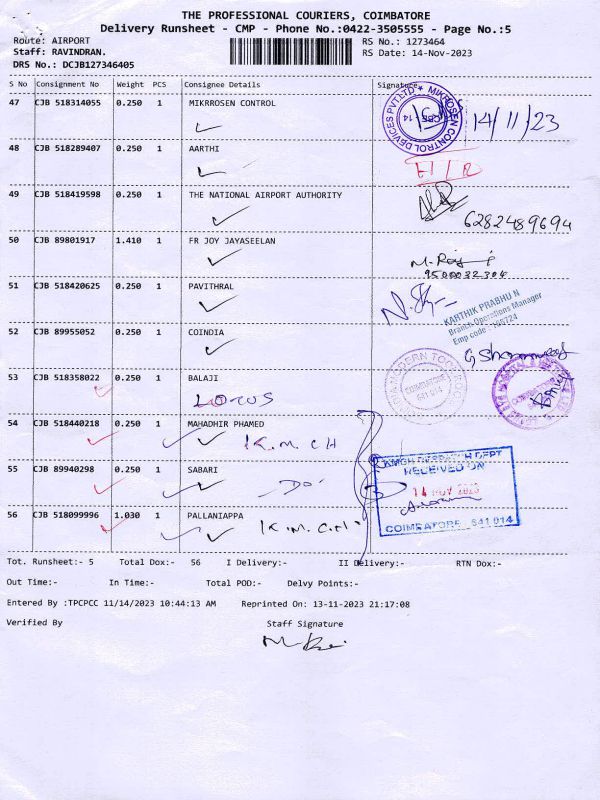 THE PROFESSIONAL COURIERS, COIMBATORE
Delivery Runsheet - CMP - Phone No.:0422-3505555 - Page No.:5
Route: AIRPORT
Staff: RAVINDRAN.
DRS No.: DCJB127346405
RS No.: 1273464
RS Date: 14-Nov-2023
S No Consignment No Weight PCS Consignee Details Signature
47 CJB 518314055 0.250 1 MIKROSEN CONTROL
MIKROSEN CONTROL DEVICES PVT.LTD ★
CBE - 14
14/11/23
48 CJB 518289407 0.250 1 AARTHI
49 CJB 518419598 0.250 1 THE NATIONAL AIRPORT AUTHORITY
6282489694
50 CJB 89801917 1.410 1 FR JOY JAYASEELAN
9500032304
51 CJB 518420625 0.250 1 PAVITHRAL
KARTHIK PRABHU N
Branch Operations Manager
Emp code
52 CJB 89955052 0.250 1 COINDIA
53 CJB 518358022 0.250 1 BALAJI
LOTUS
MODERN
COIMBATORE
641 014
54 CJB 518440218 0.250 1 MAHADHIR PHAMED
K.M CH
55 CJB 89940298 0.250 1 SABARI
- Do -
KMCH DESPATCH DEPT
RECEIVED ON
14 NOV 2023
COIMBATORE - 641 014
56 CJB 518099996 1.030 1 PALLANIAPPA
K.M.C.H
Tot. Runsheet:- 5 Total Dox:- 56 I Delivery:- II Delivery:- RTN Dox:-
Out Time:- In Time:- Total POD:- Delvy Points:-
Entered By :TPCPCC 11/14/2023 10:44:13 AM Reprinted On: 13-11-2023 21:17:08
Verified By Staff Signature